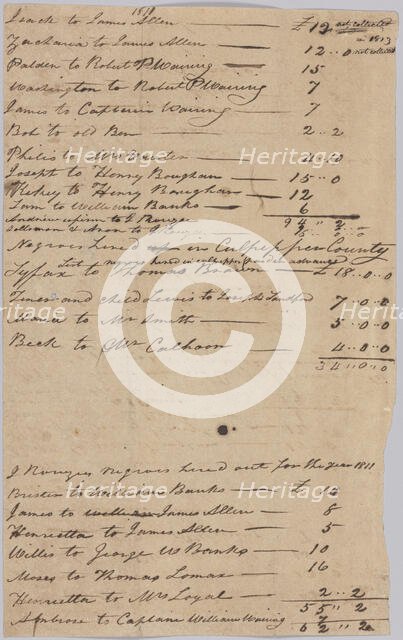 1811
Isack to James Allen — £ 12 not collected in 1813
Zacharia to James Allen — 12 .. 0 not collected
Palden to Robert P Waring — 15
Washington to Robert P Waring 7
James to Captain Waring — 7
Bob to old Ben — 2 .. 2
Philis to — 4 .. 10
Joseph to Henry Boughan — 15 .. 0
to Henry Boughan — 12
Sam to William Banks — 6
94 " 2
Negroes hired in Culpepper County
List negroes hired in culpepper
Syfax to Thomas — £ 18 .. 0 .. 0
and child Lewis to Joseph 7 .. 0 .. 0
to Mr Smith — 5 .. 0 .. 0
Beck to Mr Calhoon — 4 .. 0 .. 0
34 .. 0 .. 0
negroes hired out for the year 1811
Brister to Banks — £
James to William James Allen — 8
Henrietta to James Allen — 5
Willis to George W Banks — 10
Moses to Thomas Lomax — 16
Henrietta to Mrs Loyal — 2 .. 2
55 " 2
Ambrose to Captane William Waring 7
62 " 2
Heritage
Heritage
Heritage
Heritage
Heritage
Heritage
Images
Images
Images
Images
Images
©